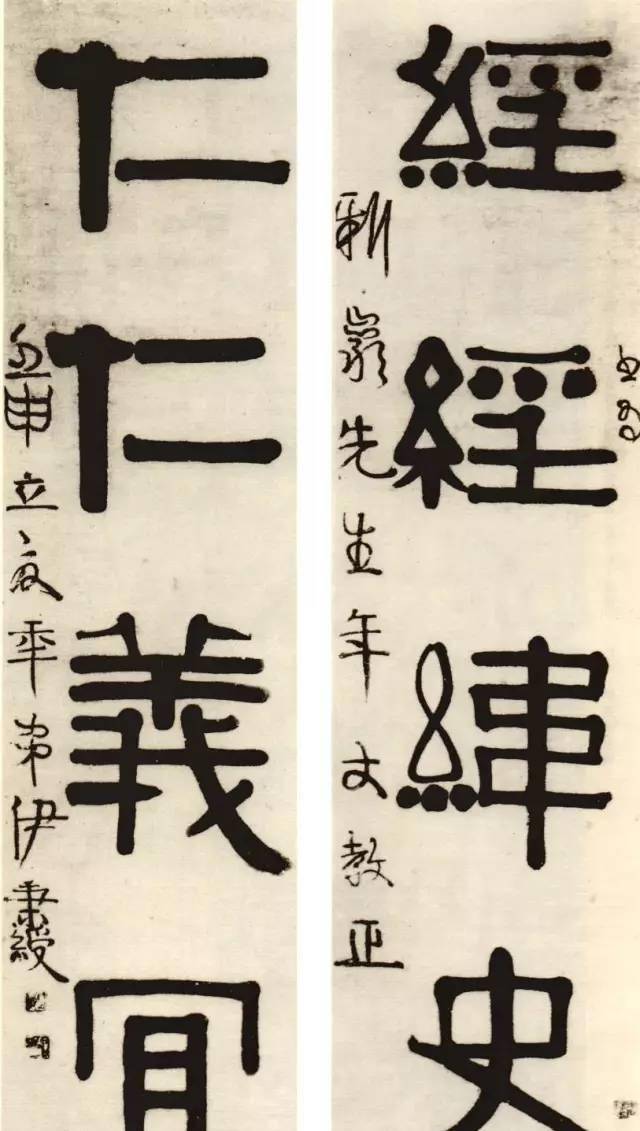 經經緯史
巖先生年丈教正
仁仁義宜
申立夏年弟伊秉綬